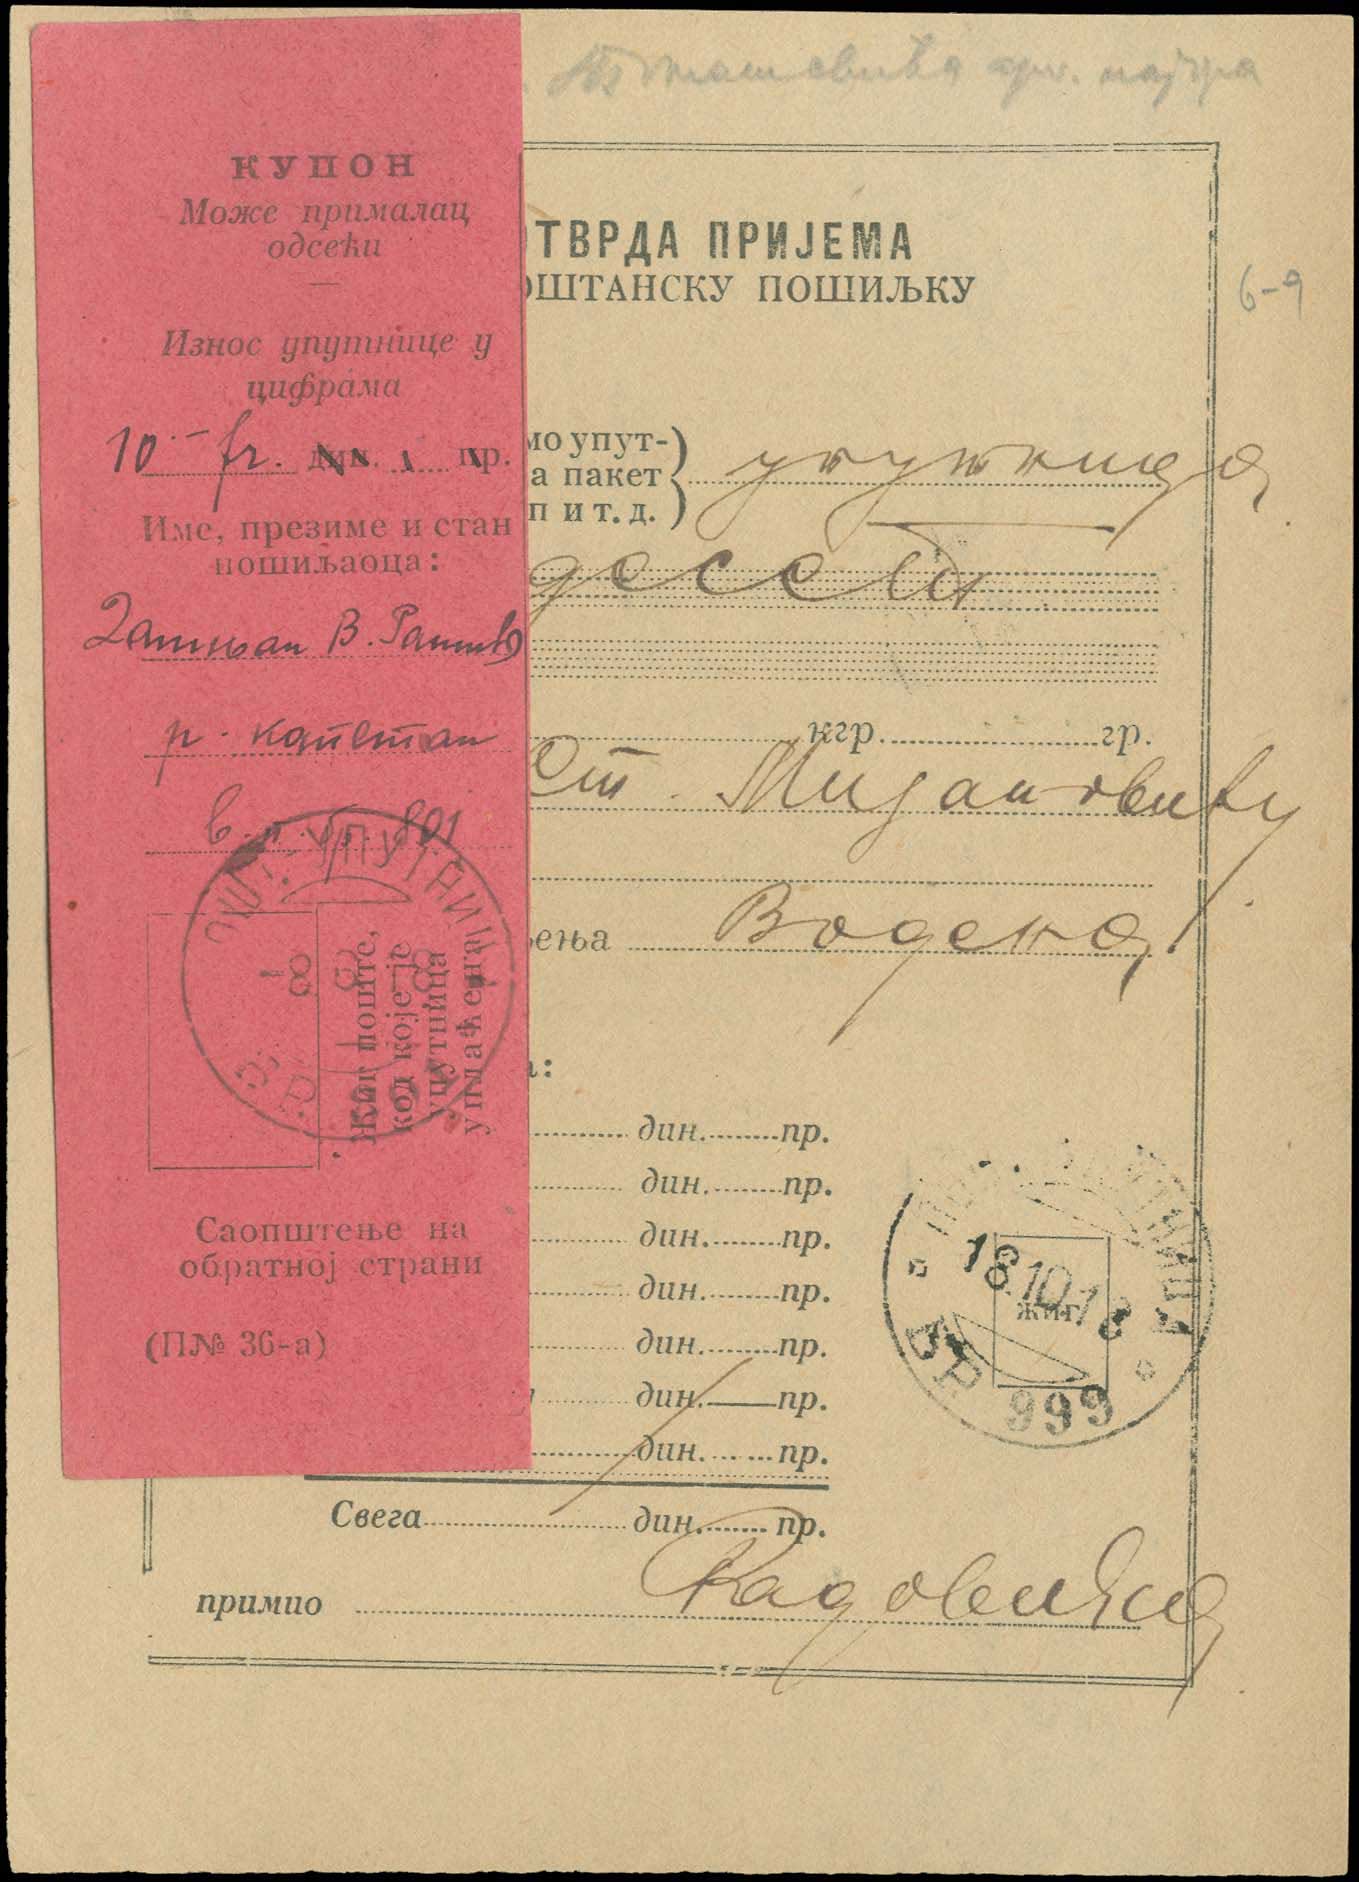 КУПОН
Може прималац
одсећи
Износ упутнице у
цифрама
10.– fr. дин. пр.
Име, презиме и стан
пошиљаоца:
В.
р. капетан
в. п. бр. 801
ПОШТ. УПУТНИЦА
18
Жиг поште,
код које је
упутница
уплаћена
Саопштење на
обратној страни
(П№ 36-а)
ОТВРДА ПРИЈЕМА
ОШТАНСКУ ПОШИЉКУ
6-9
мо упут-
а пакет
п и т. д.
упутница
десет
кгр. гр.
Ст. Мијановићу
ења Водена
а:
дин. пр.
дин. пр.
дин. пр.
дин. пр.
дин. пр.
дин. пр.
дин. пр.
Свега дин. пр.
18.10.18
жиг.
БР 999
примио